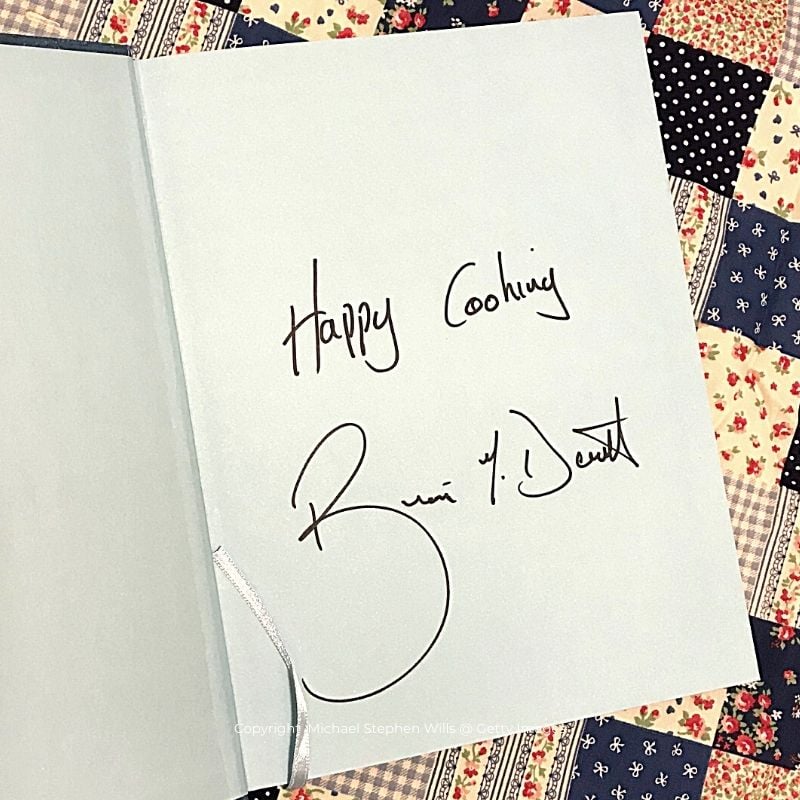 Happy Cooking
Copyright Michael Stephen Wills @ Getty Images